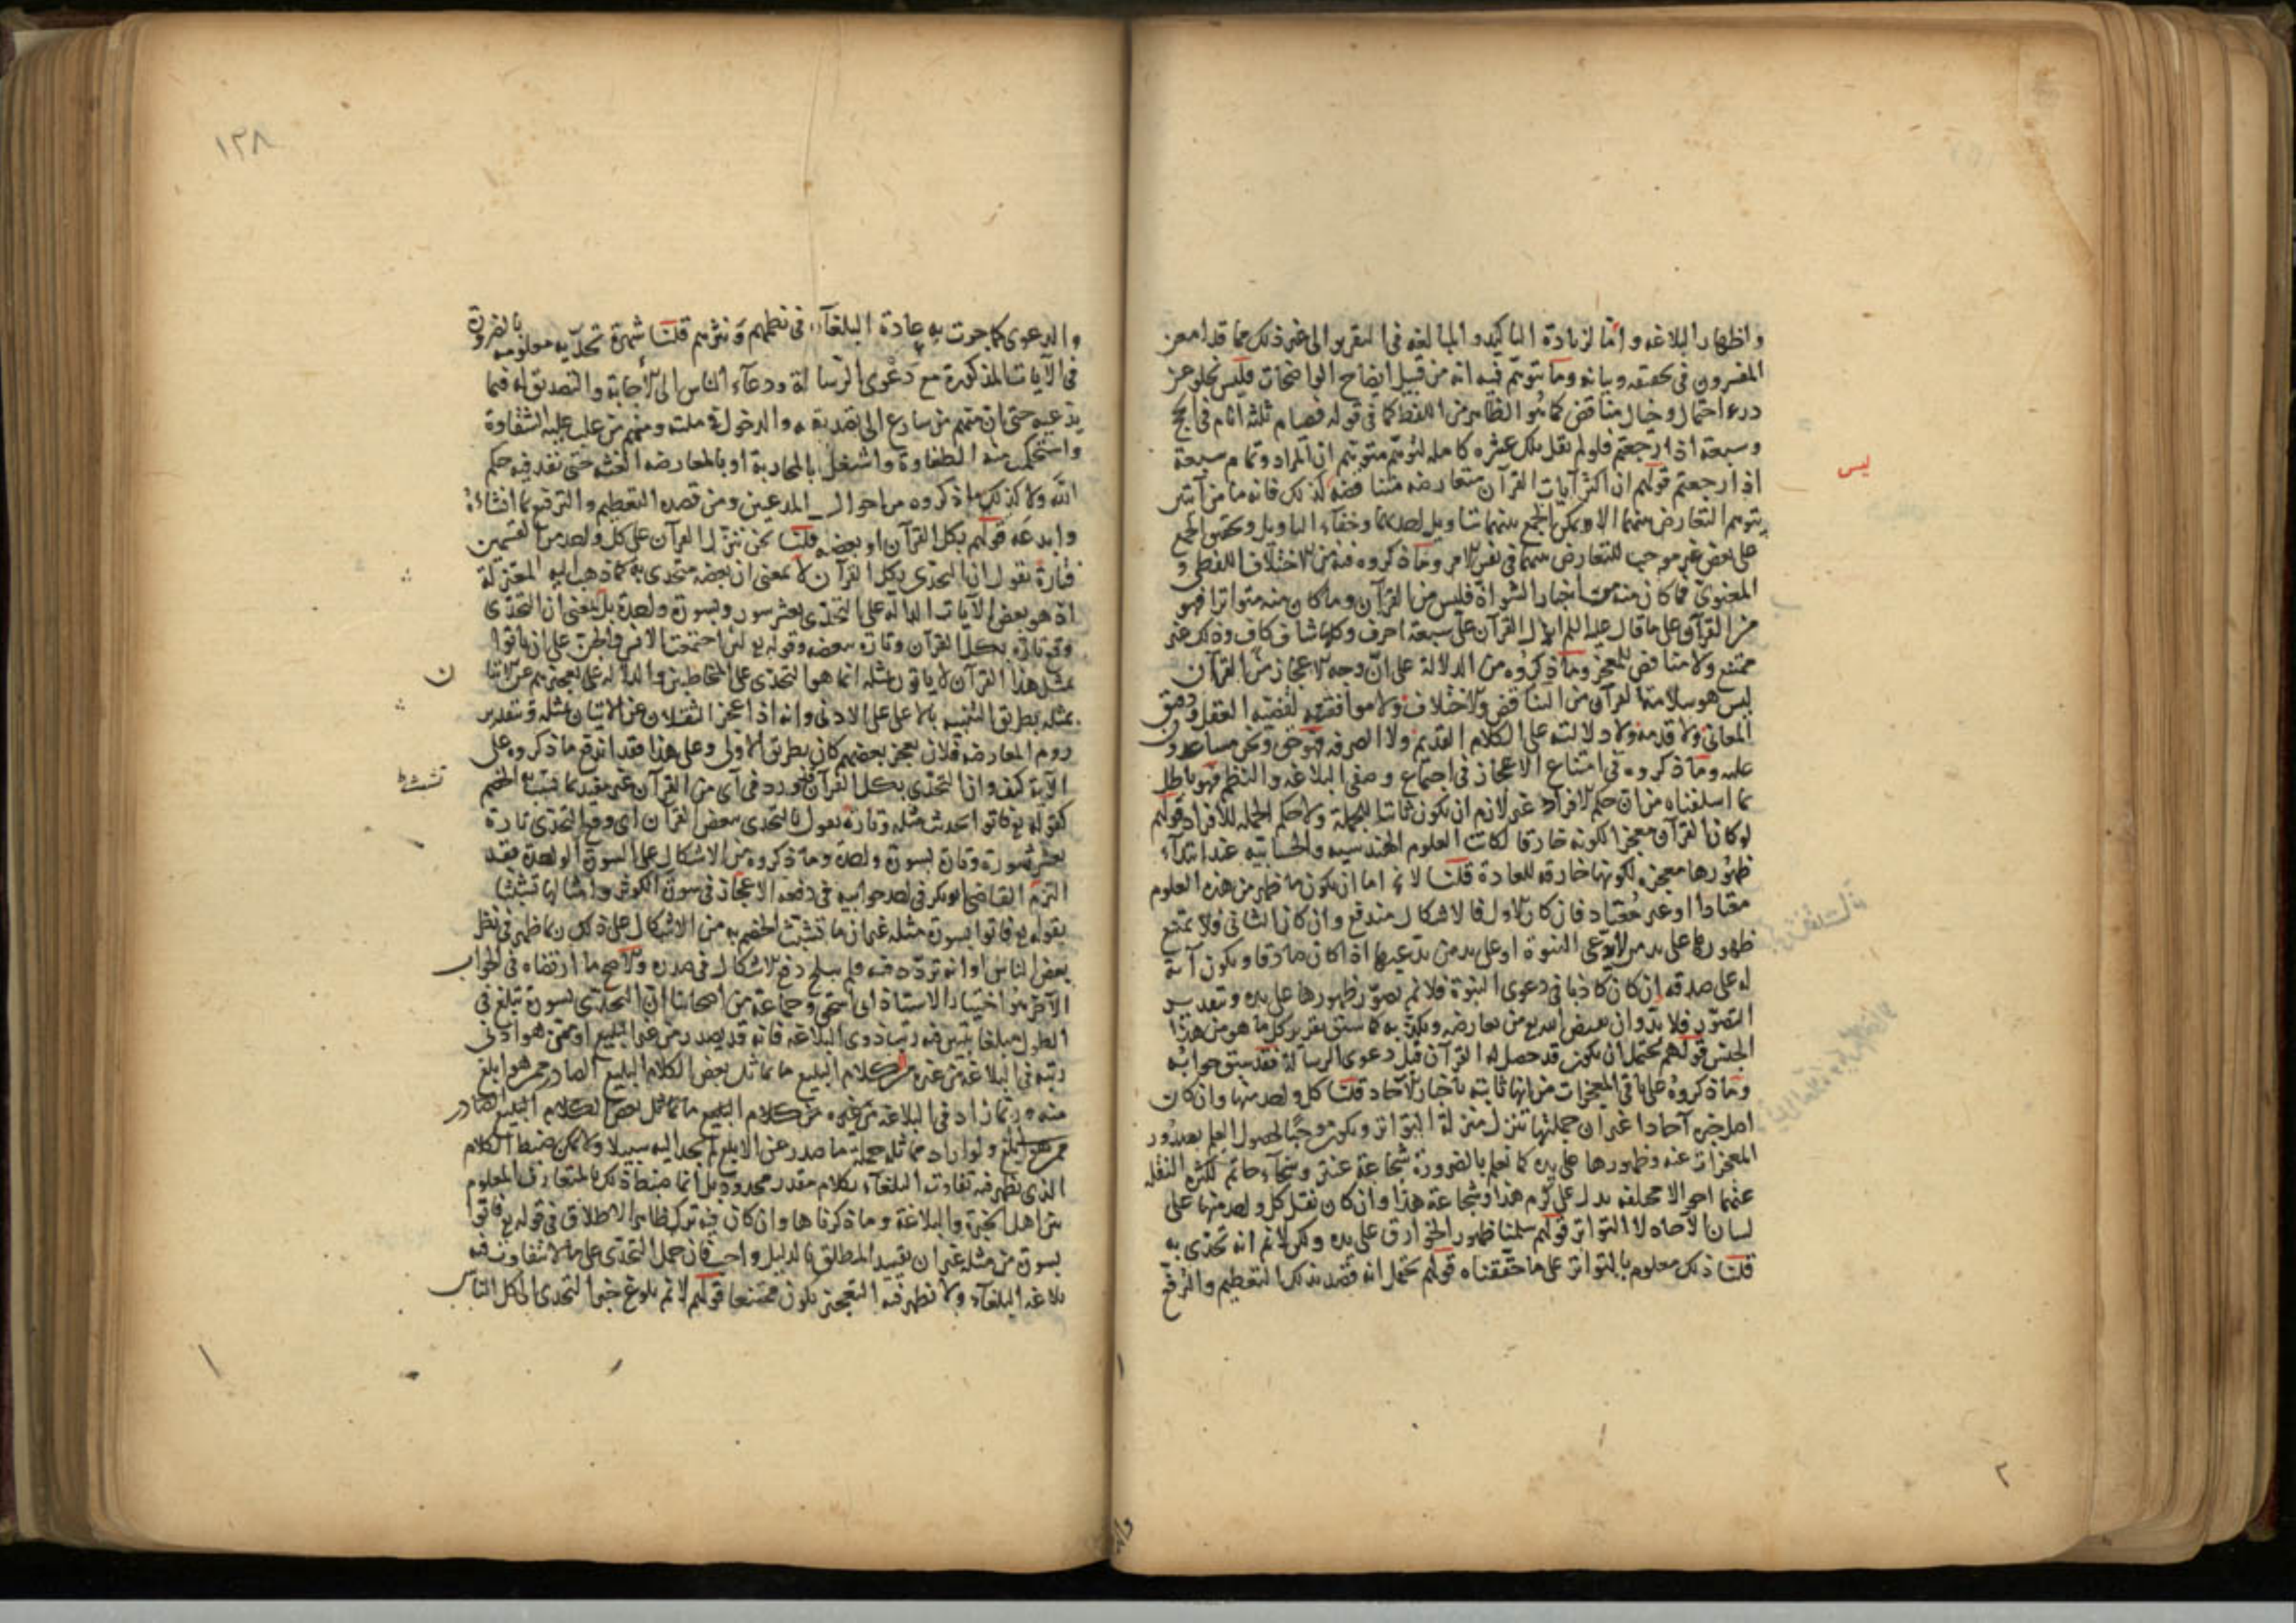 واظهار البلاغه واما لزيادة التاكيد والمبالغه فى التقريرالى غير ذلك مما قد امعن
المفسرون فى تحقيقه وبيانه وما يتوهم فيه انه من قبيل ايضاح الواضحات فليس يخلو عن
درء احتمال وخيال مناقض كما هو الظاهر من اللفظ كما فى قوله فصيام ثلثه ايام فى الحج
وسبعة اذا رجعتم فلو لم يقل تلك عشره كامله لتوهم متوهم ان المراد وتمام سبعة
ليس
اذا رجعتم قولهم ان اكثر آيات القرآن متعارضه متناقضه كذلك فانه ما من آيتين
يتوهم التعارض منهما الا ويمكن الجمع بينهما بتاويل احدهما وخفاء التاويل وتحقيق الجمع
على بعض غير موجب للتعارض بينهما فى نفس الامر وما ذكروه فيه من الاختلاف اللفظى و
المعنوى فما كان منه من اخبار الشواذ فليس من القرآن وما كان منه متواترا فهو
من القرآن على ما قال عليه السلم انزل القرآن على سبعة احرف وكلها شاف كاف وذلك غير
ممتنع ولا مناقض للمعجز وما ذكروه من الدلالة على ان وجه الاعجاز من القرآن
ليس هو سلامة القرآن من التناقض والاختلاف ولا موافقته لقضيه العقل ودقيق
المعانى ولا قدمه ولا دلالته على الكلام القديم ولا الصرفه فهو حق ونحن مساعدون
عليه وما ذكروه فى امتناع الاعجاز فى اجتماع وصفى البلاغه والنظم فهو باطل
بما اسلفناه من ان حكم الافراد غير لازم ان يكون ثابتا للجملة ولا حكم الجمله للافراد قولهم
لو كان القرآن معجزا لكونه خارقا لكانت العلوم الهندسيه والحسابيه عند ابتداء
ظهورها معجزه لكونها خارقه للعادة قلنا لا نم اما ان يكون ما ظهر من هذه العلوم
معتادا او غير معتاد فان كان الاول فالاشكال مندفع وان كان الثانى فلا يمتنع
ظهورها على يد من لا يدعى النبوة او على يد من يدعيها اذا كان صادقا ويكون آية
له على صدقه ان كان كاذبا فى دعوى النبوة فلا نم تصور ظهورها على يده وبتقدير
التصور فلا بد وان يقيض الله من يعارضه ويكذبه كما سبق تقريره كل ما هو من هذا
الجنس قولهم يحتمل ان يكون قد حصل له القرآن قبل دعوى الرسالة فقد سبق جوابه
وما ذكروه على باقى المعجزات من انها ثابته باخبار الآحاد قلنا كل واحد منها وان كان
اصل خبره آحادا غير ان جملتها تنزل منزلة التواتر ويكون موجبا لحصول العلم بصدور
المعجزات عنه وظهورها على يده كما نعلم بالضرورة شجاعة عنتر وسخاء حاتم لكثرة النقله
عنهما احوالا مختلفه يدل على كرم هذا وشجاعة هذا وان كان نقل كل واحد منها على
لسان الآحاد لا التواتر قولهم سلمنا ظهور الخوارق على يده ولكن لا نم انه تحدى به
قلنا ذلك معلوم بالتواتر على ما حققناه قولهم يحتمل انه قصد بذلك التعظيم والترفع
٢
١٣٨
والدعوى كما جرت به عادة البلغاء فى نظمهم ونثرهم قلنا شهرة تحديه معلومه بالضرورة
فى الآيات المذكورة مع دعوى الرسالة ودعاء الناس الى الاجابة والتصديق له فيما
يدعيه حتى ان منهم من سارع الى تصديقه والدخول فى ملته ومنهم من غلب عليه الشقاوة
واستحكمت منه الطغاوة واشتغل بالمحاربة او بالمعارضه الغثه حتى نفد فيه حكم
الله ولا كذلك ما ذكروه من احوال المدعين ومن قصده التعظيم والترفع بما انشاه
وابدعه قولهم بكل القرآن او ببعضه قلنا نحن ننزل القرآن على كل واحد من القسمين
فتارة نقول ان التحدى بكل القرآن لا بمعنى ان بعضه متحدى به كما ذهب اليه المعتزلة
اذ هو بعض الآيات الدالة على التحدى بعشر سور وبسورة واحدة بل بمعنى ان التحدى
وقع تارة بكل القرآن وتارة ببعضه وقوله تع لئن اجتمعت الانس والجن على ان ياتوا
بمثل هذا القرآن لا ياتون بمثله انما هو التحدى على المخاطبين والدلاله على تعجيزهم عن الاتيان
بمثله بطريق التنبيه بالاعلى على الادنى وانه اذا عجز الثقلان عن الاتيان بمثله وبتقدير
روم المعارضه فلان يعجز بعضهم كان بطريق الاولى وعلى هذا فقد اندفع ما ذكروه على
الآية كيف وان التحدى بكل القرآن قد ورد فى آى من القرآن غير مقيد بما تشبث الخصم
كقوله تع فاتوا بحديث مثله وتارة نقول بالتحدى ببعض القرآن اى وقع التحدى تارة
بعشر سورة وتارة بسورة واحدة وما ذكروه من الاشكال على السورة الواحدة فقد
التزم القاضى ابو بكر فى احد جوابيه فى دفعه الاعجاز فى سورة الكوثر وامثالها تشبثا
بقوله تع فاتوا بسورة مثله غير ان ما تشبث الخصم به من الاشكال على ذلك بما ظهر فى نظر
بعض الناس او انه تردد فيه فلم يبلج دفع الاشكال فى صدره والاصح ما ارتضاه فى الجواب
الآخر هو اختيار الاستاذ ابى اسحق وجماعة من اصحابنا ان التحدى بسورة تبلغ فى
الطول مبلغا يتبين فيه رتب ذوى البلاغه فانه قد يصدر من غير البليغ او ممن هو ادنى
رتبه فى البلاغه من غيره من كلام البليغ ما يماثل بعض الكلام البليغ الصادر ممن هو ابلغ
منه وربما زاد فى البلاغه من غيره من كلام البليغ ما يماثل بعض الكلام البليغ الصادر
ممن هو ابلغ ولو اراد مماثلة جملة ما صدر عن الابلغ لم يجد اليه سبيلا ولا يمكن ضبط الكلام
الذى يظهر فيه تفاوت البلغاء بكلام مقدر محدود بل انما ضبط ذلك بالمتعارف المعلوم
بين اهل الخبرة والبلاغة وما ذكرناها وان كان فيه ترك ظاهر الاطلاق فى قوله تع فاتوا
بسورة من مثله غير ان تقييد المطلق بالدليل واجب فان حمل التحدى على ما لا يتفاوت فيه
بلاغه البلغاء ولا يظهر فيه التعجيز يكون ممتنعا قولهم لا نم بلوغ خبر التحدى الى كل الناس